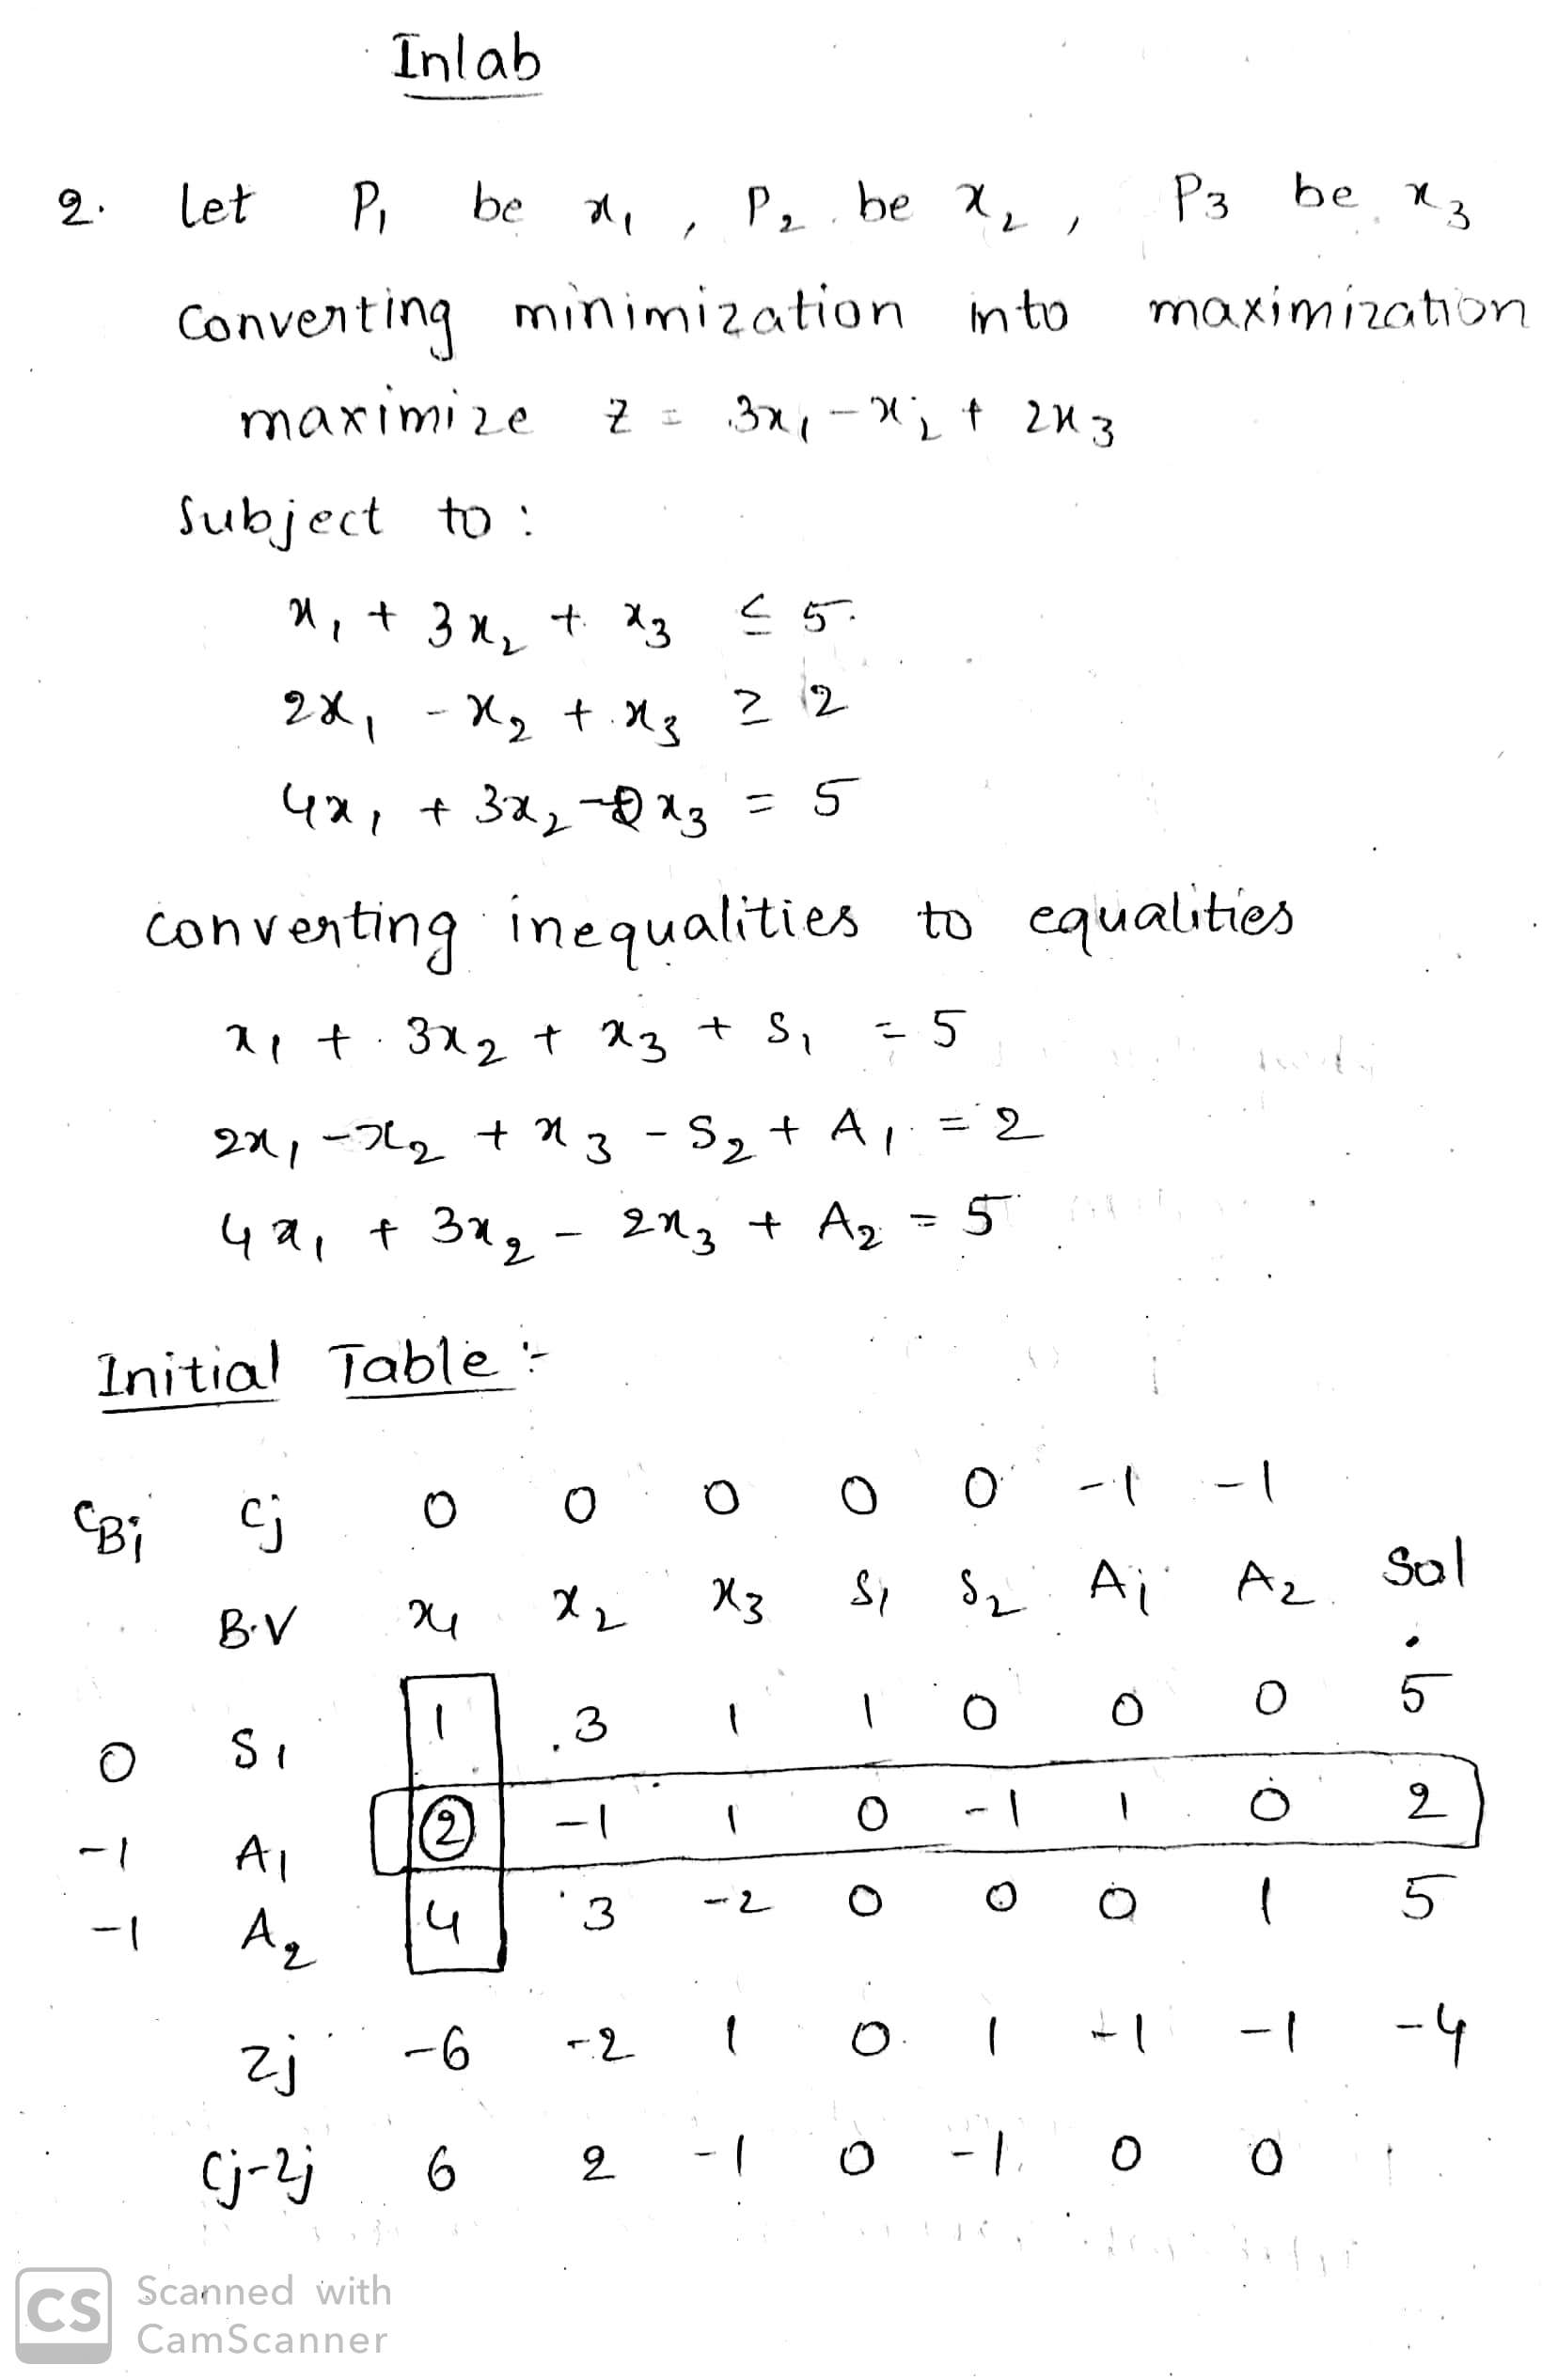 Inlab
2. let P₁ be x₁, P₂ be x₂, P3 be x₃
Converting minimization into maximization
maximize z = 3x₁ - x₂ + 2x₃
Subject to:
x₁ + 3x₂ + x₃ ≤ 5
2x₁ - x₂ + x₃ ≥ 2
4x₁ + 3x₂ - 2x₃ = 5
converting inequalities to equalities
x₁ + 3x₂ + x₃ + S₁ = 5
2x₁ - x₂ + x₃ - S₂ + A₁ = 2
4x₁ + 3x₂ - 2x₃ + A₂ = 5
Initial Table :-
CBi Cj 0 0 0 0 0 -1 -1
B.V x₁ x₂ x₃ S₁ S₂ A₁ A₂ Sol
0 S₁ 1 3 1 1 0 0 0 5
-1 A₁ 2 -1 1 0 -1 1 0 2
-1 A₂ 4 3 -2 0 0 0 1 5
Zj -6 -2 1 0 1 -1 -1 -4
Cj-Zj 6 2 -1 0 -1 0 0
CS Scanned with
CamScanner